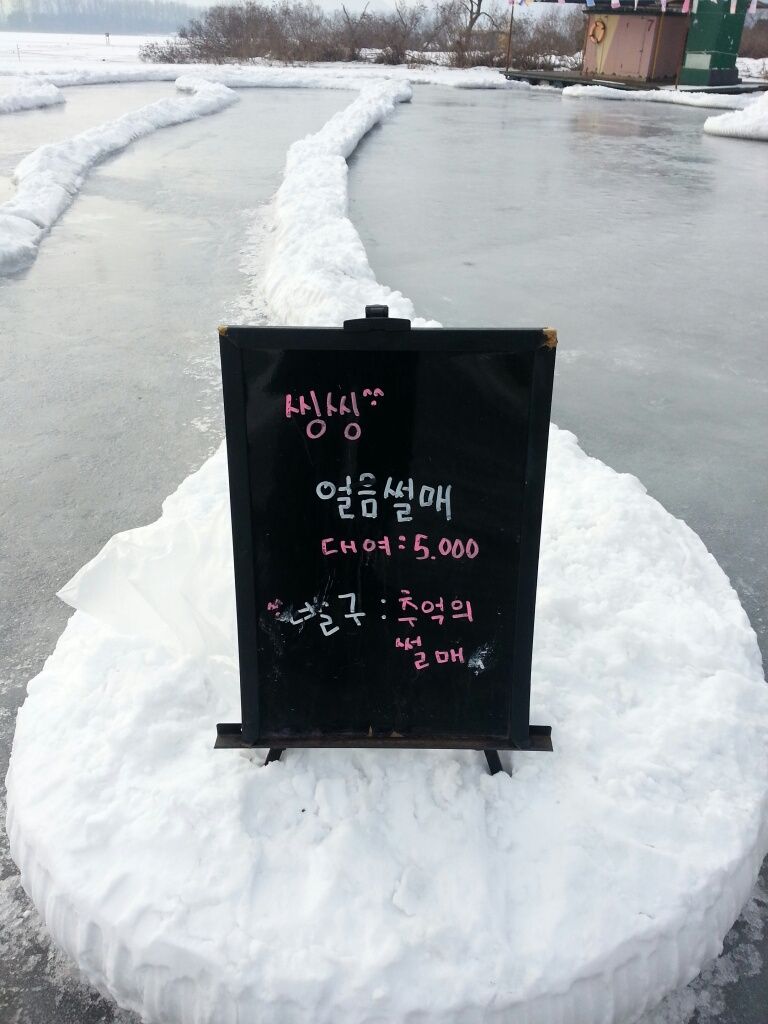 씽씽^^
얼음썰매
대여:5.000
구:추억의
썰매